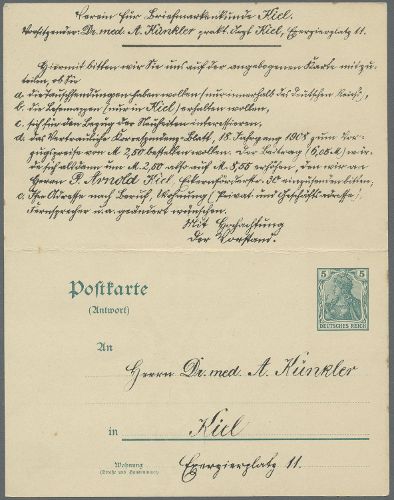 Verein für Briefmarkenkunde Kiel.
Vorsitzender: Dr. med. A. Künkler prakt. Arzt Kiel, Exerzierplatz 11.
Hiermit bitten wir Sie uns auf der angebogenen Karte mitzu-
teilen, ob Sie
a. die Tauschsendungen haben wollen (nur innerhalb des Deutschen Reichs),
b. die Lesemappen (nur in Kiel) erhalten wollen,
c. sich für den Bezug der Neuheiten interessieren,
d. das Vertrauliche Korrespondenz-Blatt, 18. Jahrgang 1908 zum Vor-
zugspreise von M 2,50 bestellen wollen. Der Beitrag (6,05 M) wür-
de sich alsdann um M 2,50 also auf M 8,55 erhöhen, den wir an
Herrn P. Arnold Kiel Eckernfördestr. 30 einzusenden bitten,
e. Ihre Adresse nach Beruf, Wohnung (Privat und Geschäftsadresse),
Fernsprecher u.a. geändert wünschen.
Mit Hochachtung
Der Vorstand.
5 5
DEUTSCHES REICH
Postkarte
(Antwort)
An
Herrn Dr. med. A. Künkler
in Kiel
Wohnung
(Straße und Hausnummer)
Exerzierplatz 11.